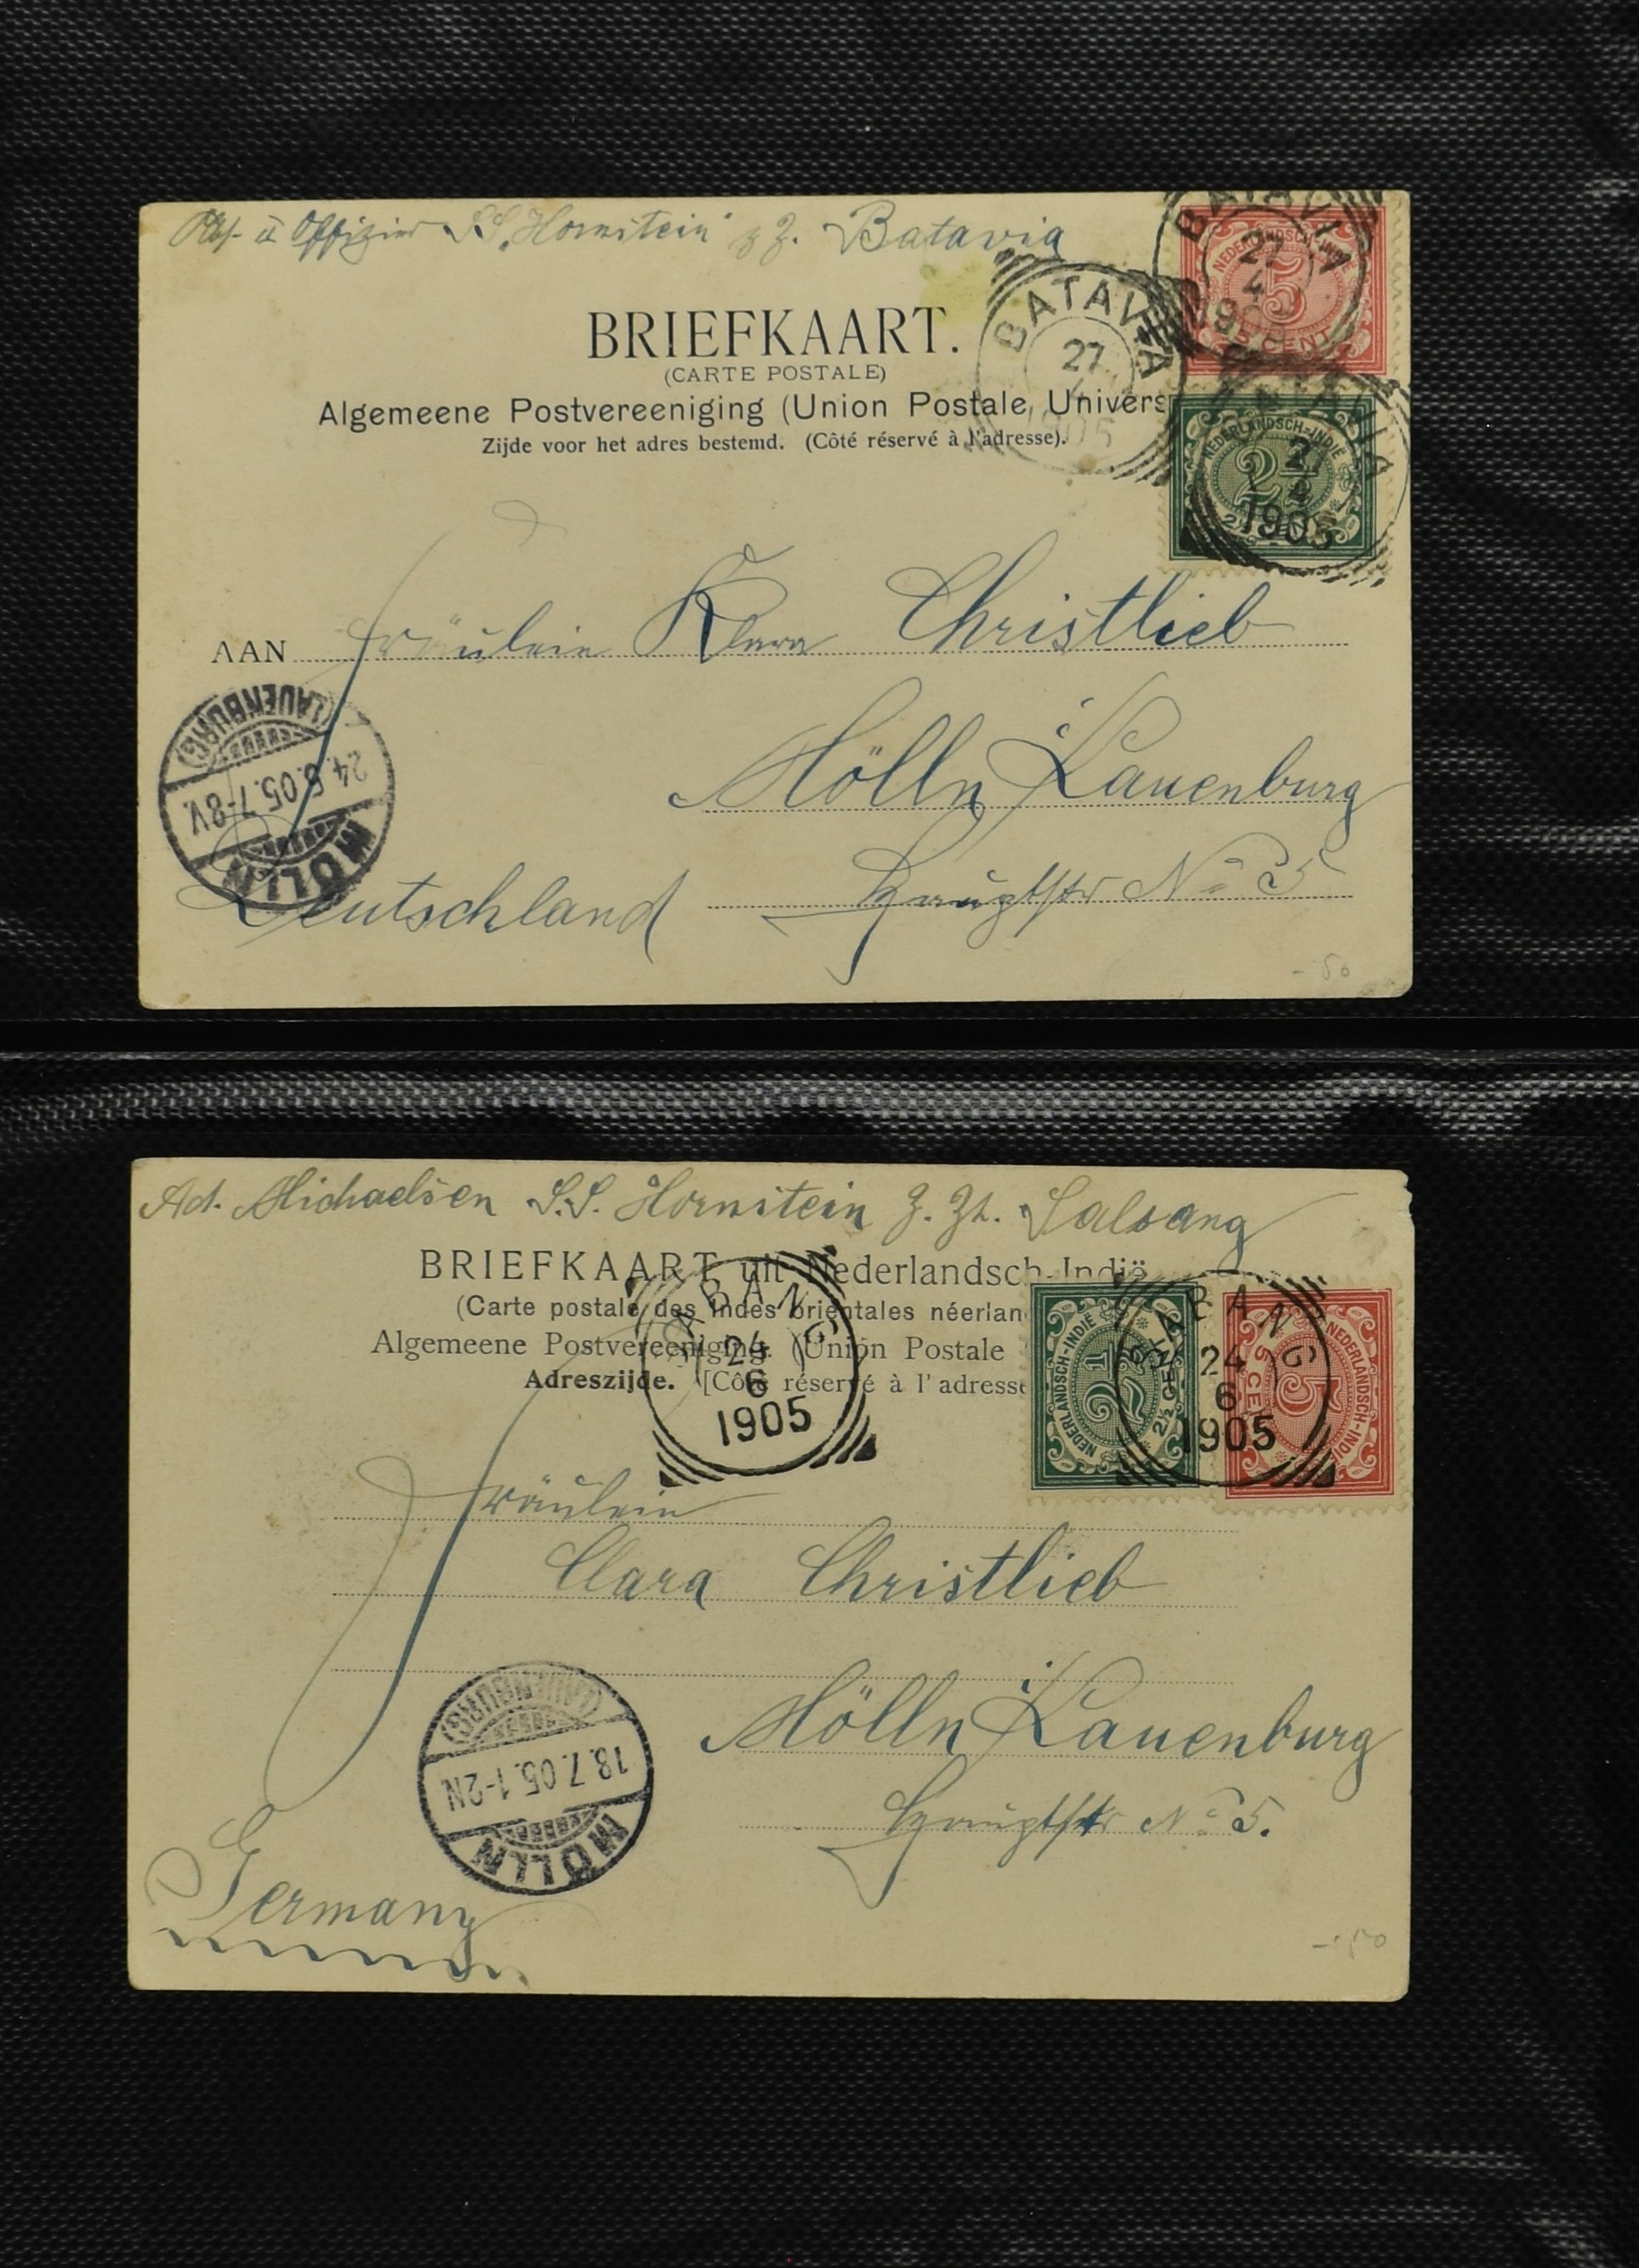 Offizier S.S. "Hornstein" z. Z. Batavia
BRIEFKAART.
(CARTE POSTALE)
Algemeene Postvereeniging (Union Postale Univers
Zijde voor het adres bestemd. (Côté réservé à l'adresse).
BATAVIA
27
4
1905
BATAVIA
27
4
1905
NEDERLANDSCH-INDIË
5
5 CENT
NEDERLANDSCH-INDIË
2½
1905
AAN Fräulein Klara Christlieb
Mölln i/Lauenburg
Hauptstr No 5
Deutschland
MÖLLN
24.5.05.7-8V.
(LAUENBURG)
- 50
Ad. Michaelsen S.S. Hornstein z. Zt. Salsang
BRIEFKAART uit Nederlandsch-Indië
(Carte postale des Indes orientales néerlan
Algemeene Postvereeniging. (Union Postale
Adreszijde. [Côté réservé à l'adresse
24
6
1905
NEDERLANDSCH-INDIË
2½
2½ CENT
NEDERLANDSCH-INDIË
5
5 CENT
24
6
1905
Fräulein
Clara Christlieb
Mölln i/Lauenburg
Hauptstr No 5.
Germany
MÖLLN
18.7.05.1-2N
(LAUENBURG)
- 50